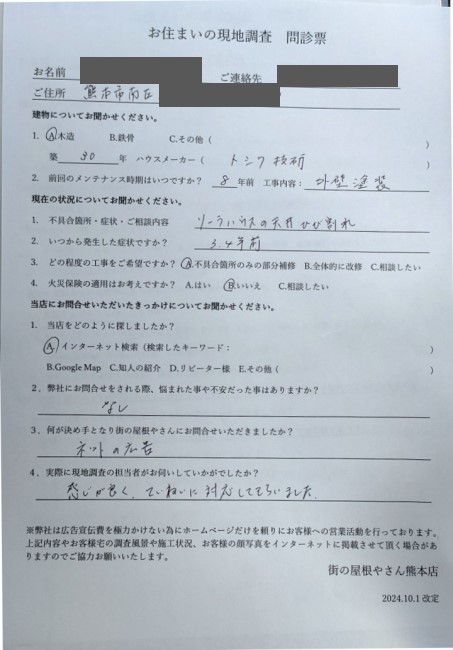 お住まいの現地調査 問診票
お名前 ご連絡先
ご住所 熊本市南区
建物についてお聞かせください。
1. A.木造 B.鉄骨 C.その他( )
築 30 年 ハウスメーカー( トシワ技研 )
2. 前回のメンテナンス時期はいつですか? 8 年前 工事内容: 外壁塗装
現在の状況についてお聞かせください。
1. 不具合箇所・症状・ご相談内容 ソーラハウスの天井ひび割れ
2. いつから発生した症状ですか? 3.4年前
3. どの程度の工事をご希望ですか? A.不具合箇所のみの部分補修 B.全体的に改修 C.相談したい
4. 火災保険の適用はお考えですか? A.はい B.いいえ C.相談したい
当店にお問合せいただいたきっかけについてお聞かせください。
1. 当店をどのように探しましたか?
A.インターネット検索(検索したキーワード: )
B.Google Map C.知人の紹介 D.リピーター様 E.その他( )
2. 弊社にお問合せをされる際、悩まれた事や不安だった事はありますか?
なし
3. 何が決め手となり街の屋根やさんにお問合せいただきましたか?
ネットの広告
4. 実際に現地調査の担当者がお伺いしていかがでしたか?
感じが良く、ていねいに対応してもらいました。
※弊社は広告宣伝費を極力かけない為にホームページだけを頼りにお客様への営業活動を行っております。
上記内容やお客様宅の調査風景や施工状況、お客様の顔写真をインターネットに掲載させて頂く場合があ
りますのでご協力お願いいたします。
街の屋根やさん熊本店
2024.10.1 改定